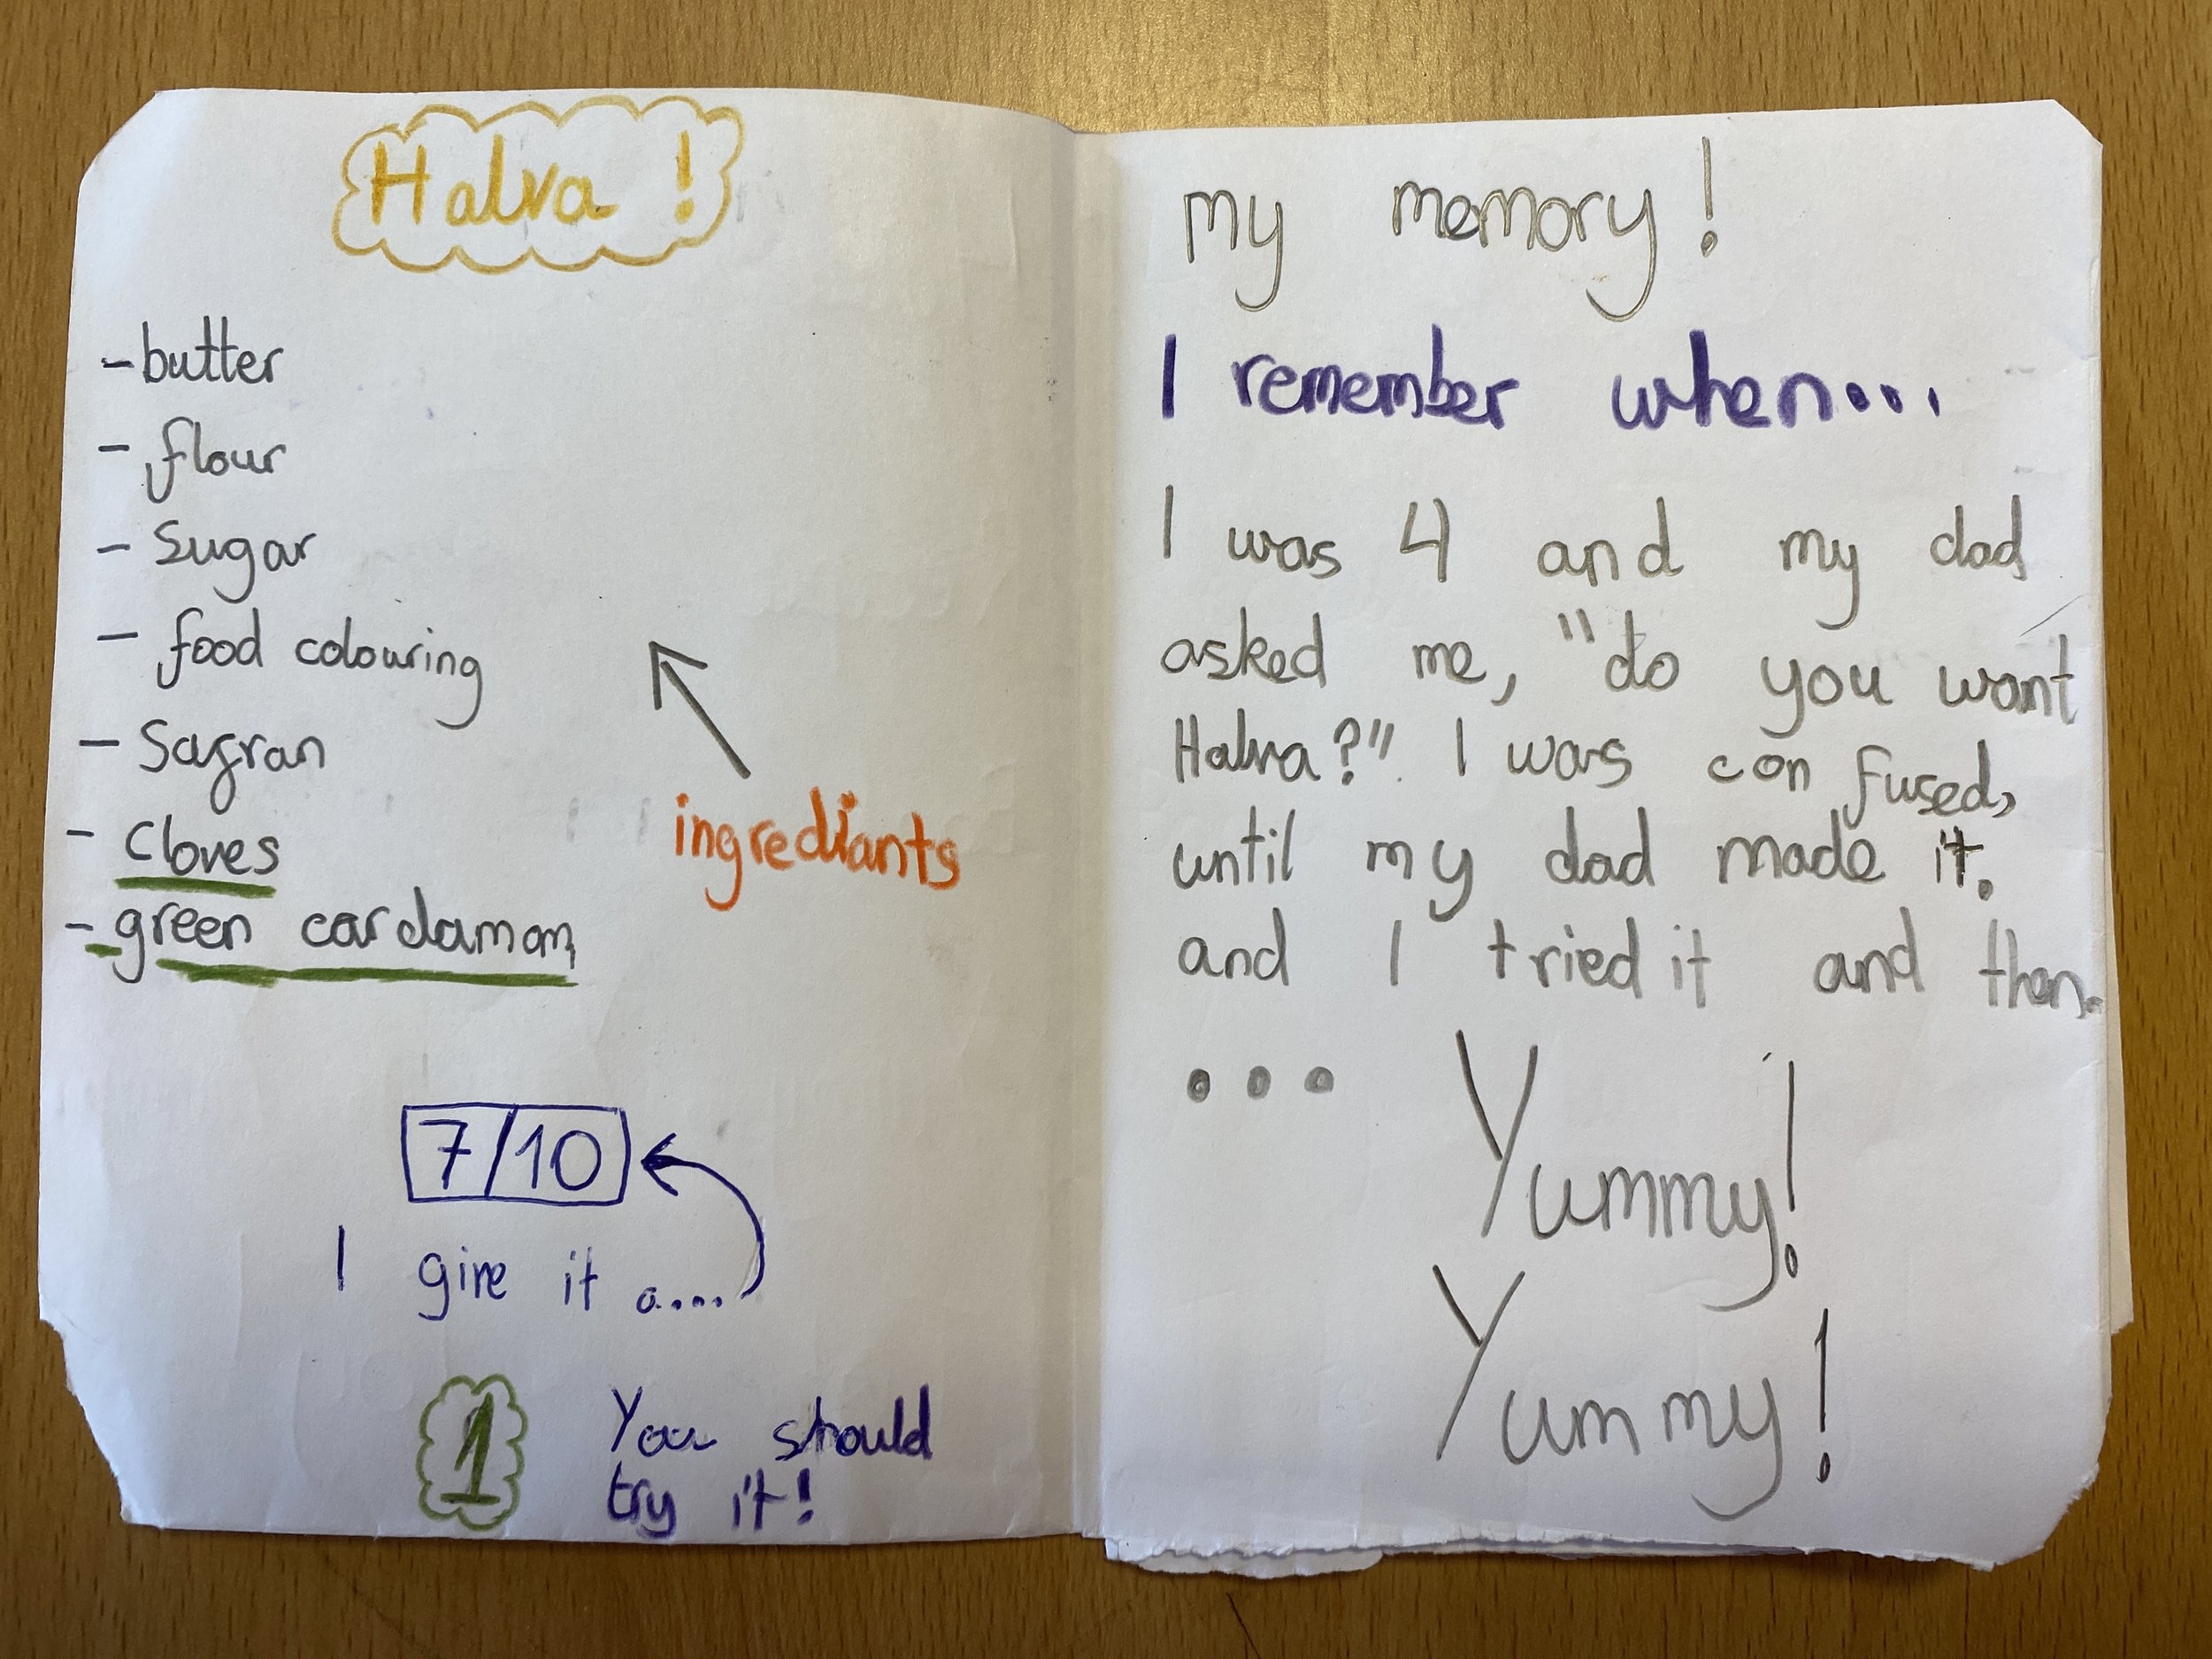 Halva !
- butter
- flour
- Sugar
- food colouring
- Safran
- Cloves
- green cardamom
ingrediants
7/10
I give it a....
1
You should
try it!
my memory!
I remember when...
I was 4 and my dad
asked me, "do you want
Halva?". I was con fused,
until my dad made it.
and I tried it and then.
... Yummy!
Yummy!